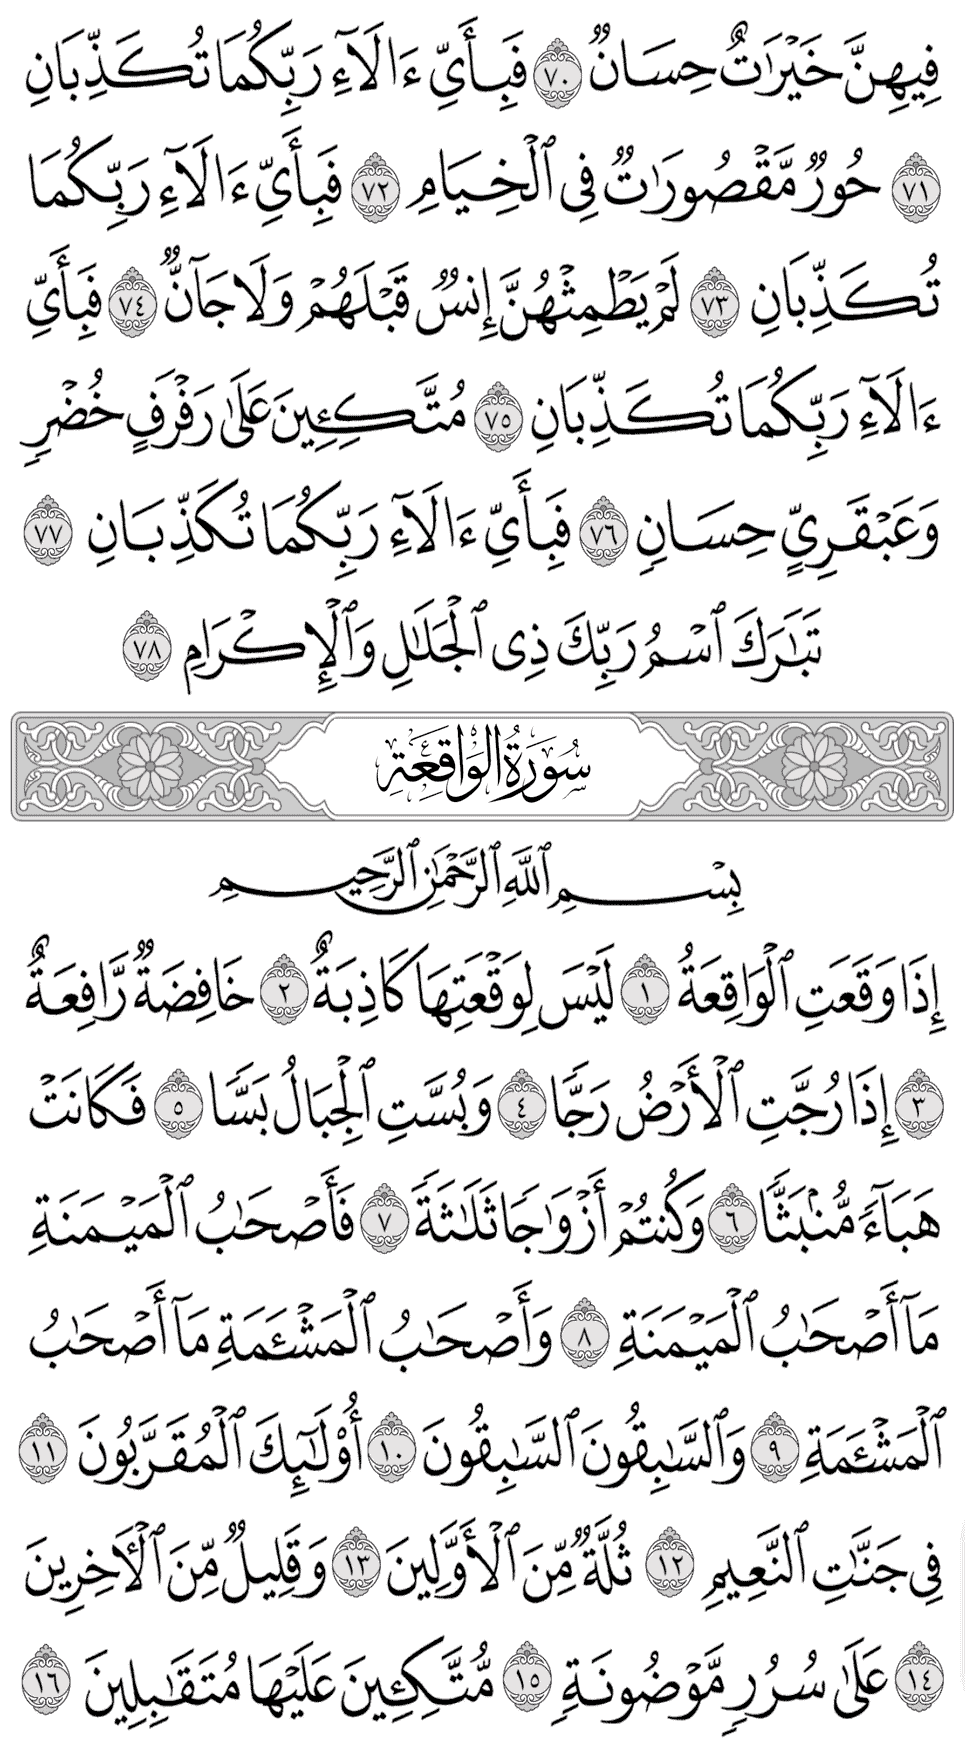 فِيهِنَّ خَيْرَٰتٌ حِسَانٌ ٧٠ فَبِأَيِّ ءَالَآءِ رَبِّكُمَا تُكَذِّبَانِ
٧١ حُورٌ مَّقْصُورَٰتٌ فِى ٱلْخِيَامِ ٧٢ فَبِأَيِّ ءَالَآءِ رَبِّكُمَا
تُكَذِّبَانِ ٧٣ لَمْ يَطْمِثْهُنَّ إِنسٌ قَبْلَهُمْ وَلَا جَآنٌّ ٧٤ فَبِأَيِّ
ءَالَآءِ رَبِّكُمَا تُكَذِّبَانِ ٧٥ مُتَّكِـِٔينَ عَلَىٰ رَفْرَفٍ خُضْرٍ
وَعَبْقَرِيٍّ حِسَانٍ ٧٦ فَبِأَيِّ ءَالَآءِ رَبِّكُمَا تُكَذِّبَانِ ٧٧
تَبَٰرَكَ ٱسْمُ رَبِّكَ ذِى ٱلْجَلَٰلِ وَٱلْإِكْرَامِ ٧٨
سُورَةُ الوَاقِعَةِ
بِسْمِ ٱللَّهِ ٱلرَّحْمَٰنِ ٱلرَّحِيمِ
إِذَا وَقَعَتِ ٱلْوَاقِعَةُ ١ لَيْسَ لِوَقْعَتِهَا كَاذِبَةٌ ٢ خَافِضَةٌ رَّافِعَةٌ
٣ إِذَا رُجَّتِ ٱلْأَرْضُ رَجًّا ٤ وَبُسَّتِ ٱلْجِبَالُ بَسًّا ٥ فَكَانَتْ
هَبَآءً مُّنۢبَثًّا ٦ وَكُنتُمْ أَزْوَٰجًا ثَلَٰثَةً ٧ فَأَصْحَٰبُ ٱلْمَيْمَنَةِ
مَآ أَصْحَٰبُ ٱلْمَيْمَنَةِ ٨ وَأَصْحَٰبُ ٱلْمَشْـَٔمَةِ مَآ أَصْحَٰبُ
ٱلْمَشْـَٔمَةِ ٩ وَٱلسَّٰبِقُونَ ٱلسَّٰبِقُونَ ١٠ أُو۟لَٰٓئِكَ ٱلْمُقَرَّبُونَ ١١
فِى جَنَّٰتِ ٱلنَّعِيمِ ١٢ ثُلَّةٌ مِّنَ ٱلْأَوَّلِينَ ١٣ وَقَلِيلٌ مِّنَ ٱلْءَاخِرِينَ
١٤ عَلَىٰ سُرُرٍ مَّوْضُونَةٍ ١٥ مُّتَّكِـِٔينَ عَلَيْهَا مُتَقَٰبِلِينَ ١٦